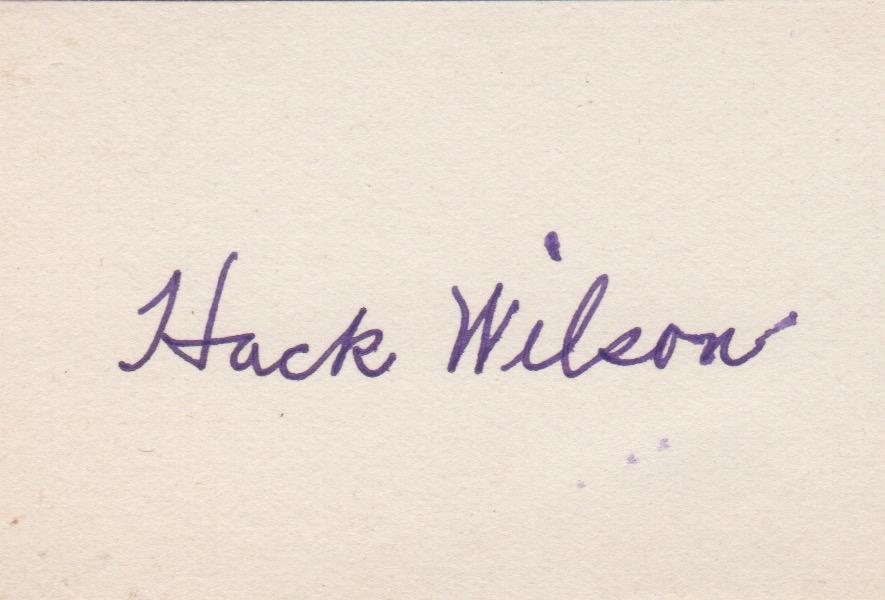 Hack Wilson